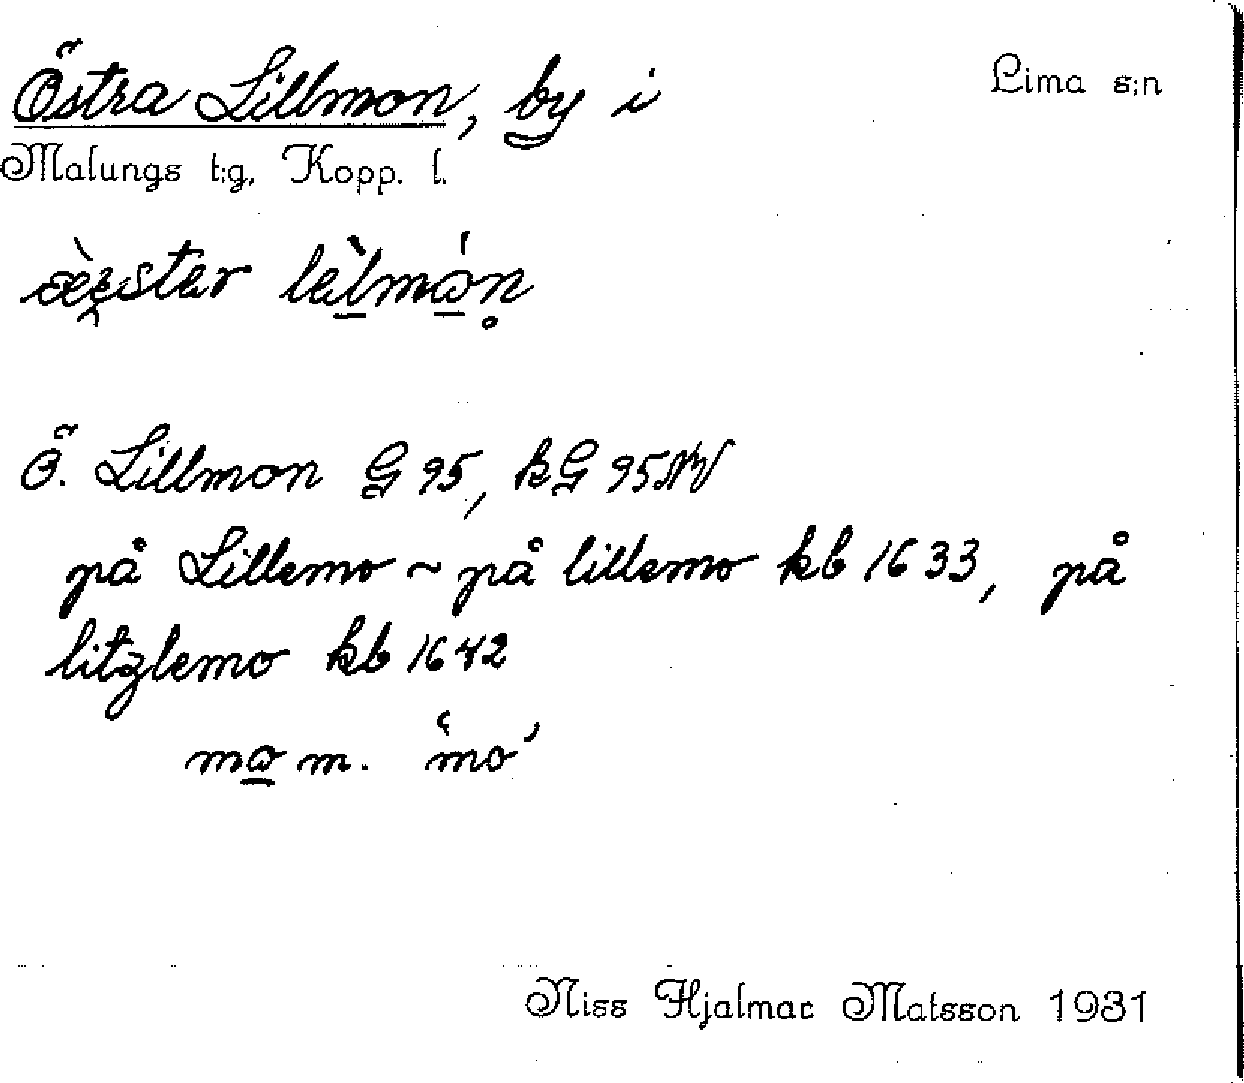 Östra Lillmon, by i Lima s:n
Malungs t:g, Kopp. l.
Ö. Lillmon G 95, kG 95 NV
på Lillemo ~ på lillemo kb 1633, på
litzlemo kb 1642
mo m. 'mo'
Niss Hjalmar Matsson 1931